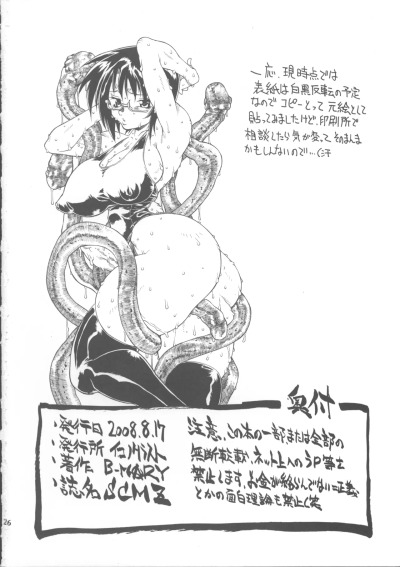 一応、現時点では
表紙は白黒反転の予定
なのでコピーとって元絵として
貼ってみましたけど、印刷所で
相談したら気が変って そのまんま
かもしんないので…(汗
奥付
・発行日 2008.8.17
・発行所
・著作 B-MARY
・誌名 SCM
注意、この本の一部または全部の
無断転載、ネット上へのうP等は
禁止します。お金が絡んでない=正義
とかの面白理論も禁止(笑
26